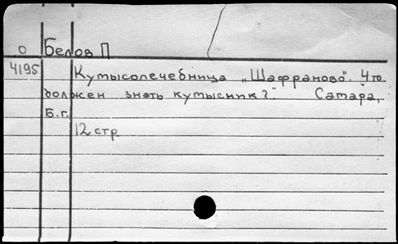 0 Белов П
4195 Кумысолечебница „Шафраново". Что
должен знать кумысник?". Самара,
Б.г.
12 стр.